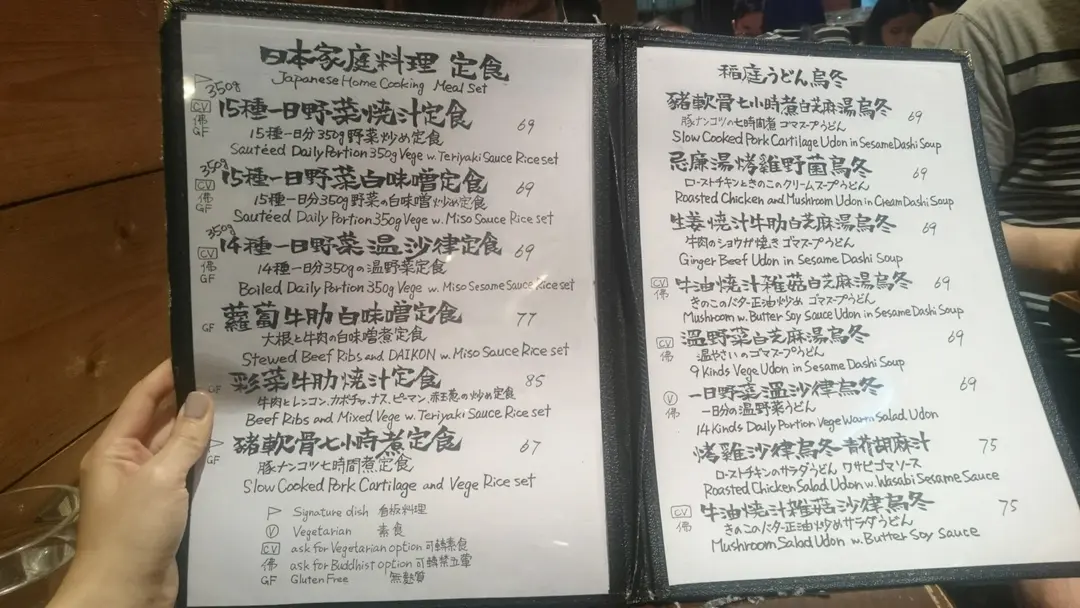 日本家庭料理 定食
Japanese Home Cooking Meal Set
350g
CV
佛
GF
15種一日野菜燒汁定食 69
15種一日分350g野菜炒め定食
Sautéed Daily Portion 350g Vege w. Teriyaki Sauce Rice set
350g
CV
佛
GF
15種一日野菜白味噌定食 69
15種一日分350g野菜の白味噌炒め定食
Sautéed Daily Portion 350g Vege w. Miso Sauce Rice set
350g
CV
佛
GF
14種一日野菜溫沙律定食 69
14種一日分350gの温野菜定食
Boiled Daily Portion 350g Vege w. Miso Sesame Sauce Rice set
GF
蘿蔔牛肋白味噌定食 77
大根と牛肉の白味噌煮定食
Stewed Beef Ribs and DAIKON w. Miso Sauce Rice set
GF
彩菜牛肋燒汁定食 85
牛肉とレンコン、カボチャ、ナス、ピーマン、赤玉葱の炒め定食
Beef Ribs and Mixed Vege w. Teriyaki Sauce Rice set
GF
豬軟骨七小時煮定食 67
豚ナンコツ七時間煮定食
Slow Cooked Pork Cartilage and Vege Rice set
Signature dish 看板料理
V Vegetarian 素食
CV ask for Vegetarian option 可轉素食
佛 ask for Buddhist option 可轉禁五葷
GF Gluten Free 無麩質
稲庭うどん烏冬
豬軟骨七小時煮白芝麻湯烏冬 69
豚ナンコツ七時間煮 ゴマスープうどん
Slow Cooked Pork Cartilage Udon in Sesame Dashi Soup
忌廉湯烤雞野菌烏冬 69
ローストチキンときのこのクリームスープうどん
Roasted Chicken and Mushroom Udon in Cream Dashi Soup
生姜燒汁牛肋白芝麻湯烏冬 69
牛肉のショウガ焼き ゴマスープうどん
Ginger Beef Udon in Sesame Dashi Soup
CV
佛
牛油燒汁雑菇白芝麻湯烏冬 69
きのこのバター正油炒め ゴマスープうどん
Mushroom w. Butter Soy Sauce Udon in Sesame Dashi Soup
CV
佛
溫野菜白芝麻湯烏冬 69
温やさいのゴマスープうどん
9 Kinds Vege Udon in Sesame Dashi Soup
V
佛
一日野菜溫沙律烏冬 69
一日分の温野菜うどん
14 Kinds Daily Portion Vege Warm Salad Udon
烤雞沙律烏冬 青芥胡麻汁 75
ローストチキンのサラダうどん ワサビゴマソース
Roasted Chicken Salad Udon w. Wasabi Sesame Sauce
CV
佛
牛油燒汁雑菇沙律烏冬 75
きのこのバター正油炒めサラダうどん
Mushroom Salad Udon w. Butter Soy Sauce